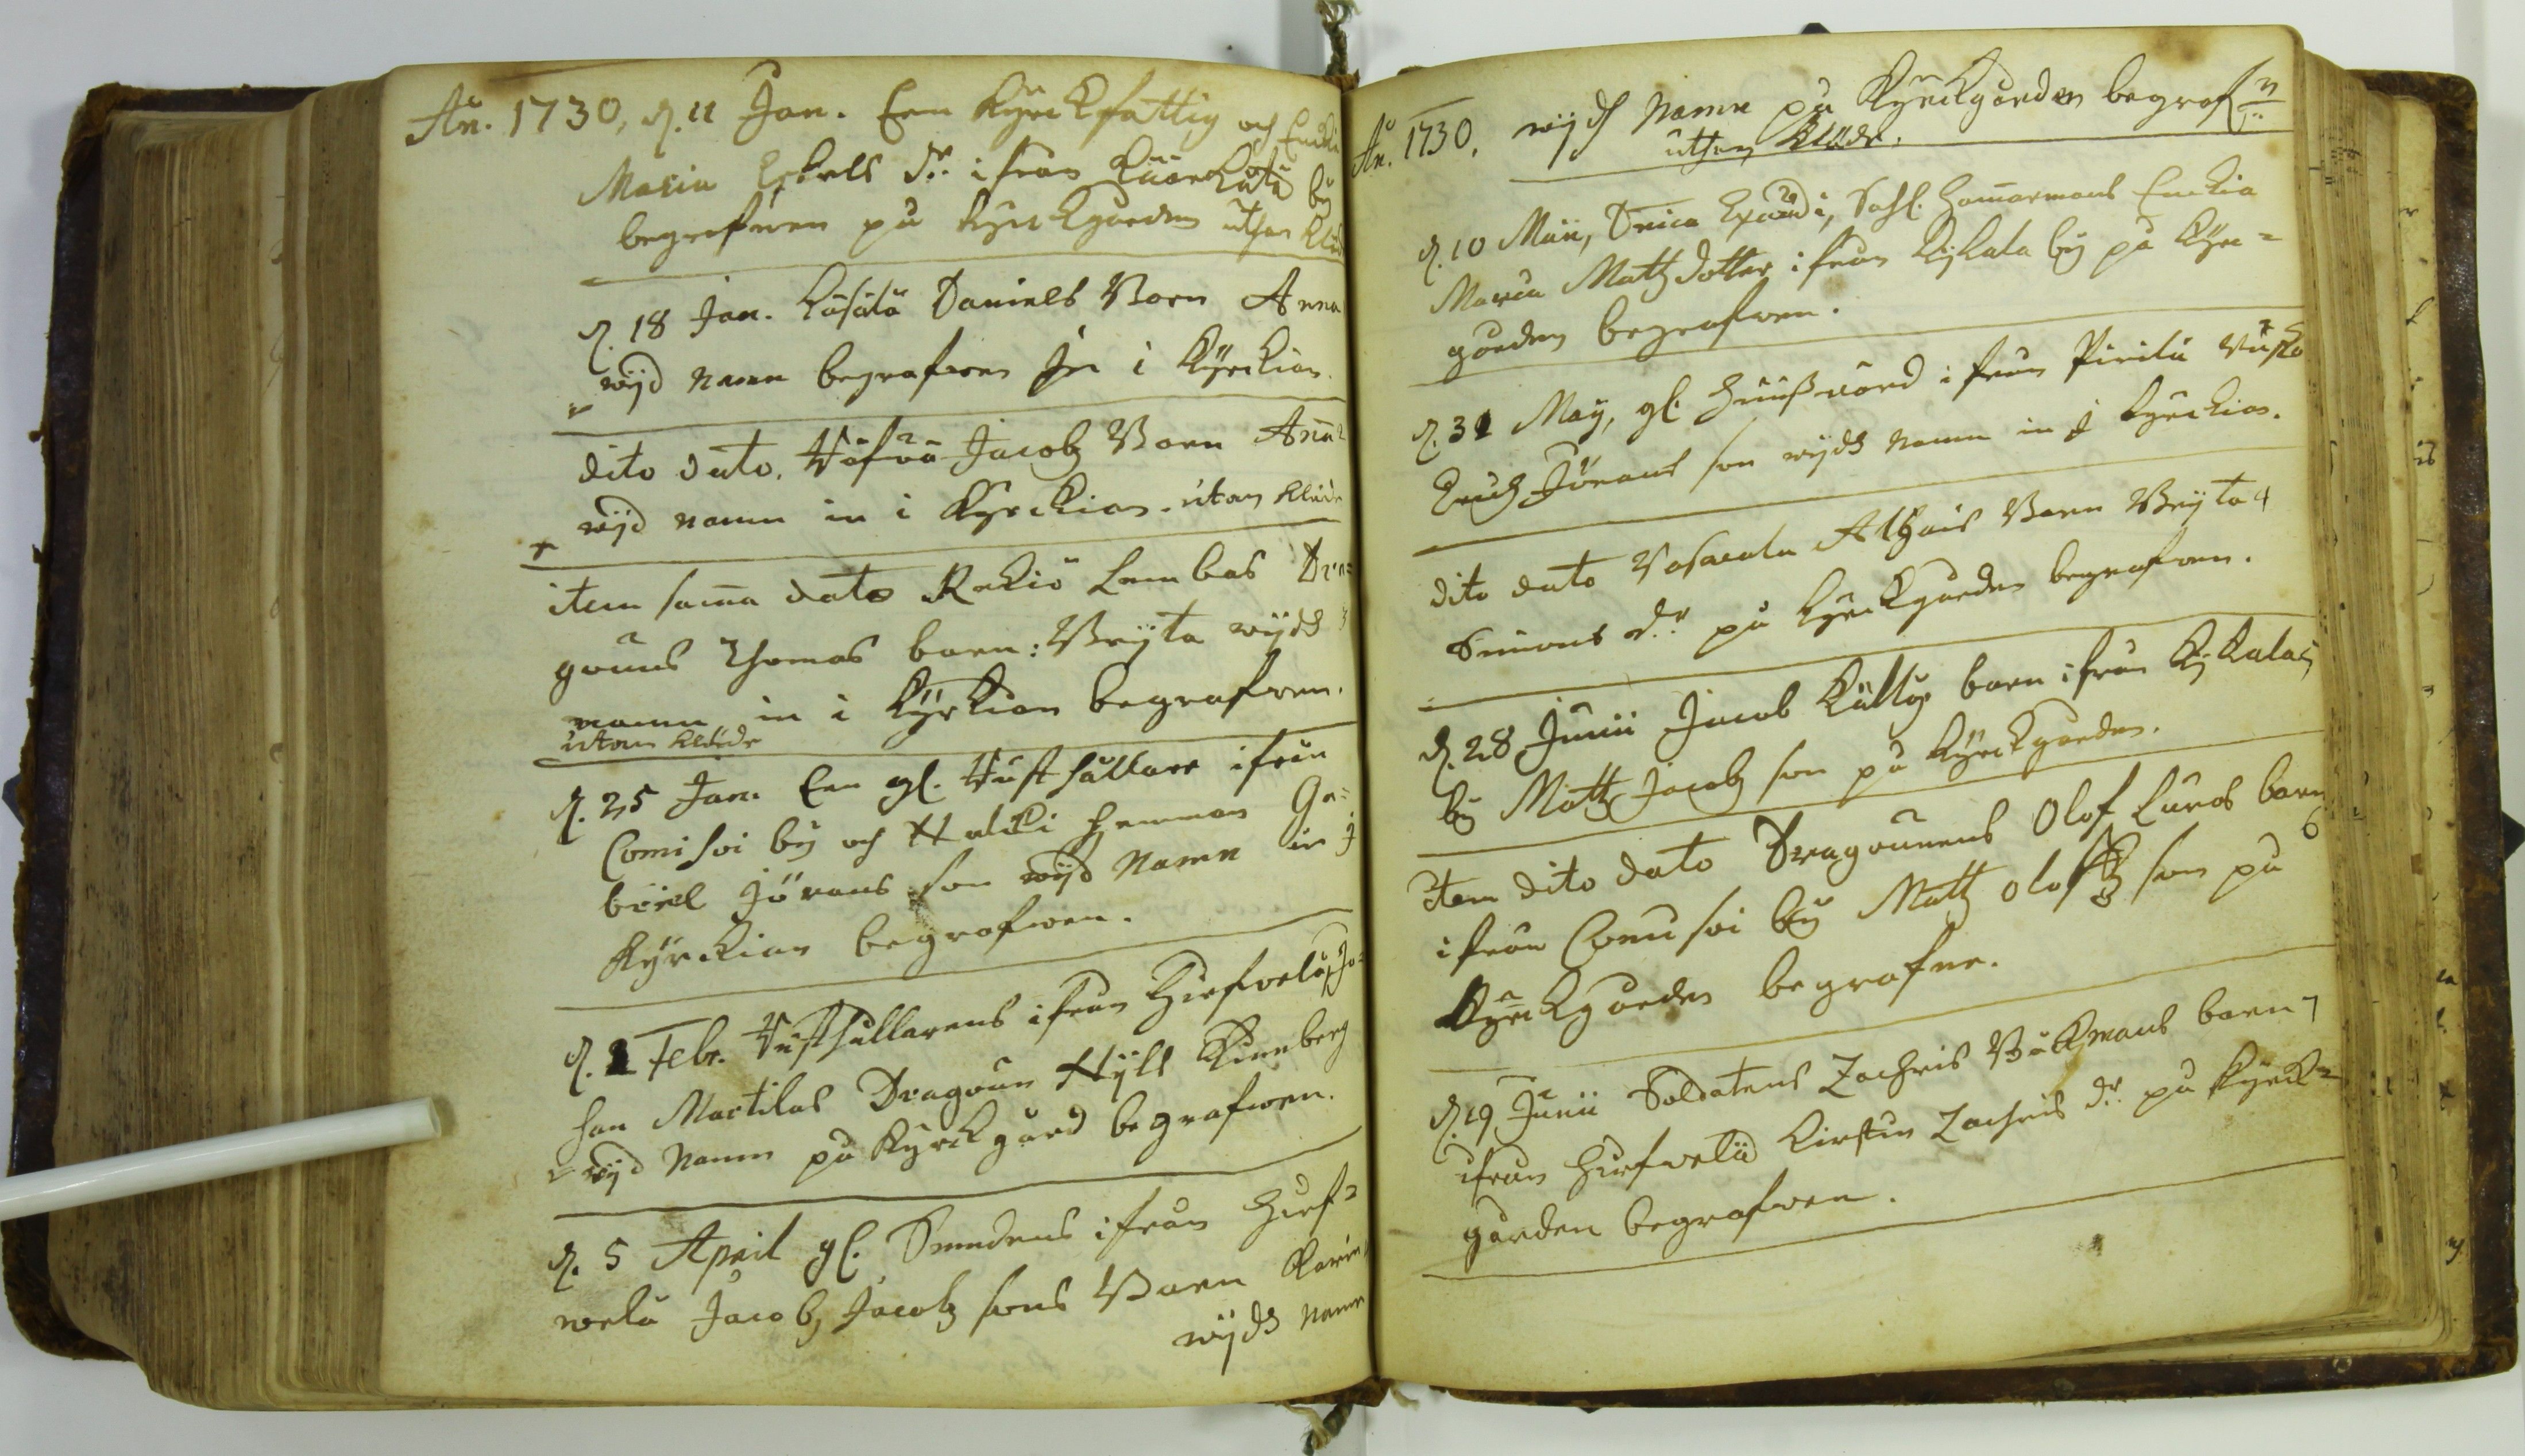 An. 1730, d. 11 Jan. Een Kyrckfattig och Enckia
Maria Eskels dr. ifrån by
begrafwen på kyrckgården uthan kläde
d. 18 Jan. Daniels Barn Anna
wijd namn begrafwen in i Kyrckian.
dito dato. Jacobs Barn Anna
wijd namn in i Kyrckian. utan kläde
item samma dato Rekiö Lambas Dra=
gouns Thomas barn: Bryta wijd
namn in i Kyrkian begrafwen.
utan kläde
d. 25 Jan. Een gl. ifrån
Comisoi by och Halicki hemman Ga=
briel Jörans son wijd Namn in i
Kyrckian begrafwen.
d. 2 Febr. ifrån Hirfvelä Jo=
han Martilas Dragoun Nijls
wijd Namn på Kyrckgård begrafwen.
d. 5 April gl. Smedens ifrån Hirf=
welä Jacob Jacobs sons Barn Karin
wijds namn
An. 1730. wijds Namn på Kyrckgården begrafn
uthan kläde.
d. 10 Maii, Sahl. Hammarmans Enckia
Maria Matts dotter ifrån Kijkala by på Kyrc=
gården begrafwen.
d. 31 May, gl. ifrån Pirilä
Jörans son wijds namn in i kyrckian.
dito dato Barn Bryta 4
Simons dr. på kyrckgården begrafwen.
d. 28 Junii Jacob barn ifrån Kijkala 5
by Matts Jacobs son på Kyrckgården.
item dito dato Dragounens Olof barn
ifrån Comisoi by Matts Olofs son på 6
Kyrckgården begrafne.
d. 29 Junii Soldatens Zachris Bäckmans barn 7
ifrån Hirfvelä Kirstin Zachris dr. på kyrck=
gården begrafwen.